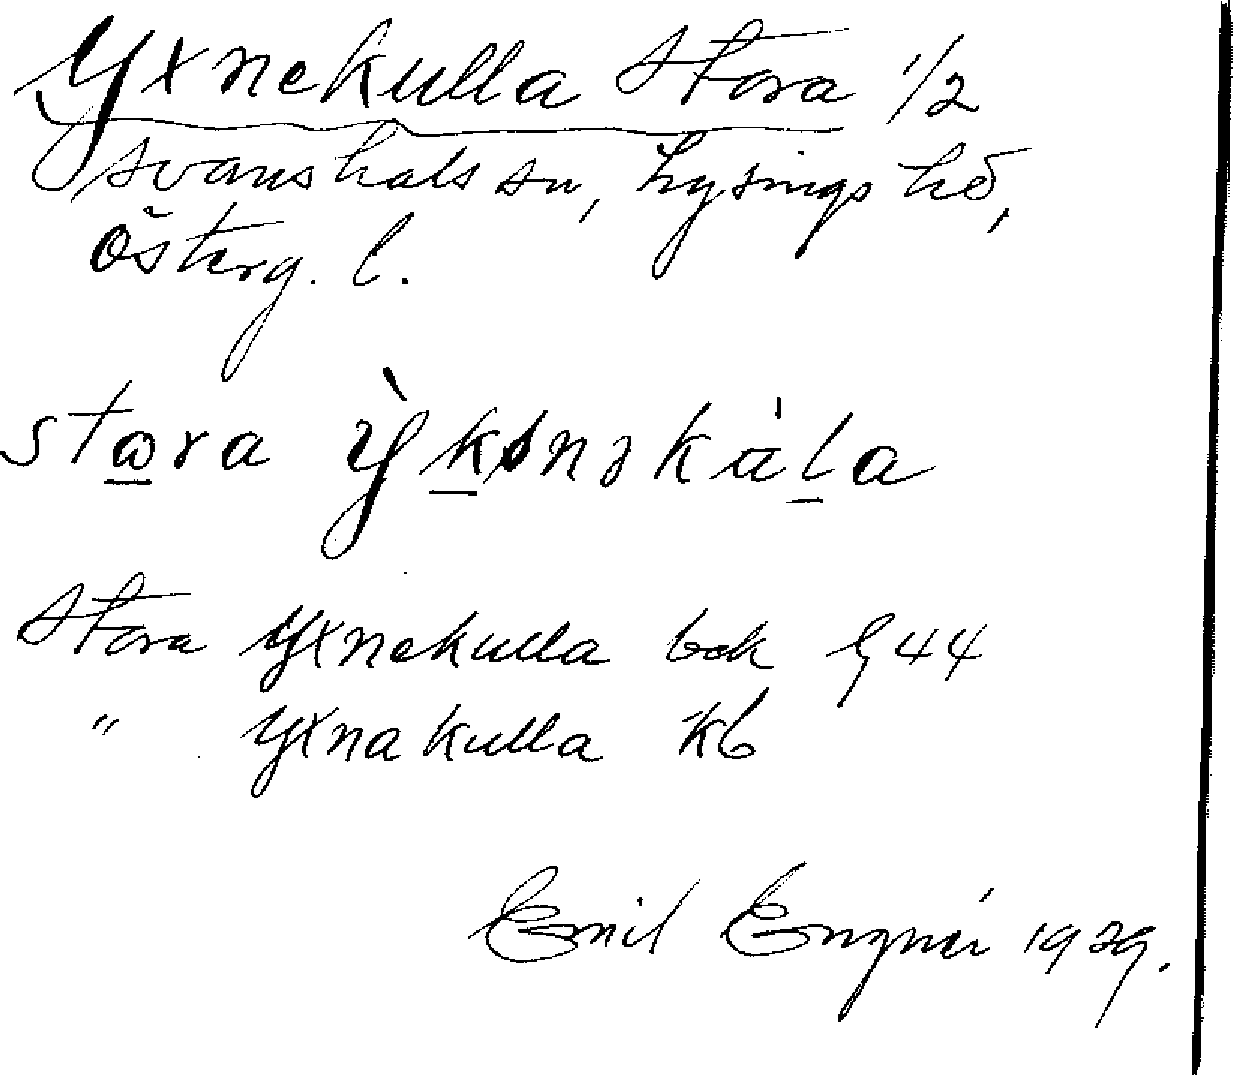 Yxnekulla Stora 1/2
Svanshals sn, Lysings hd,
Österg. l.
stora
Stora Yxnekulla bok 44
" Yxnakulla Kb
Emil Engnér 1929.